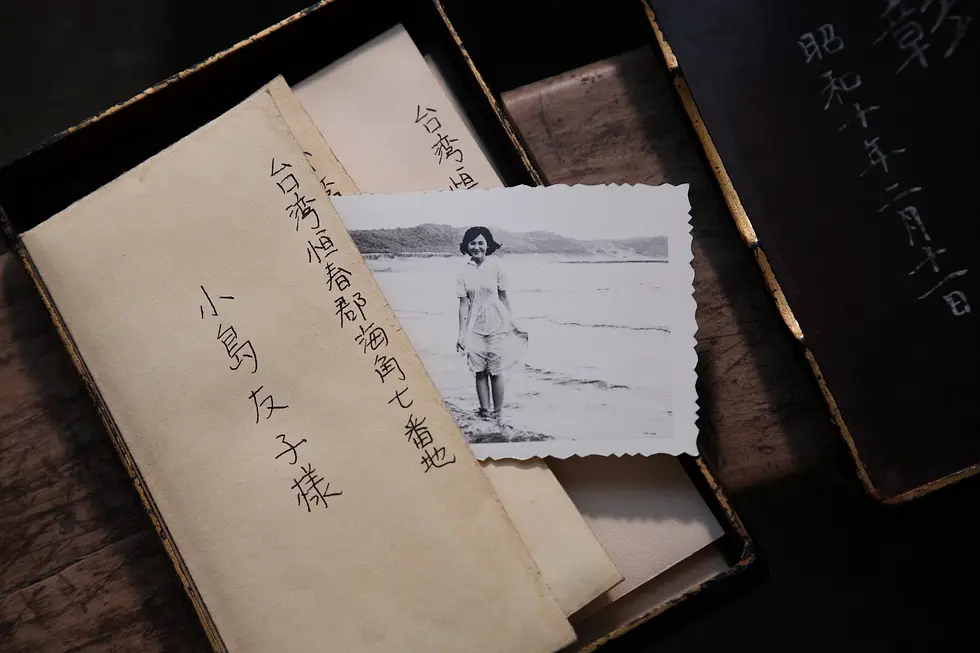 台湾恒春郡海角七番地
小島友子樣
台湾恒
昭和十年二月十一日